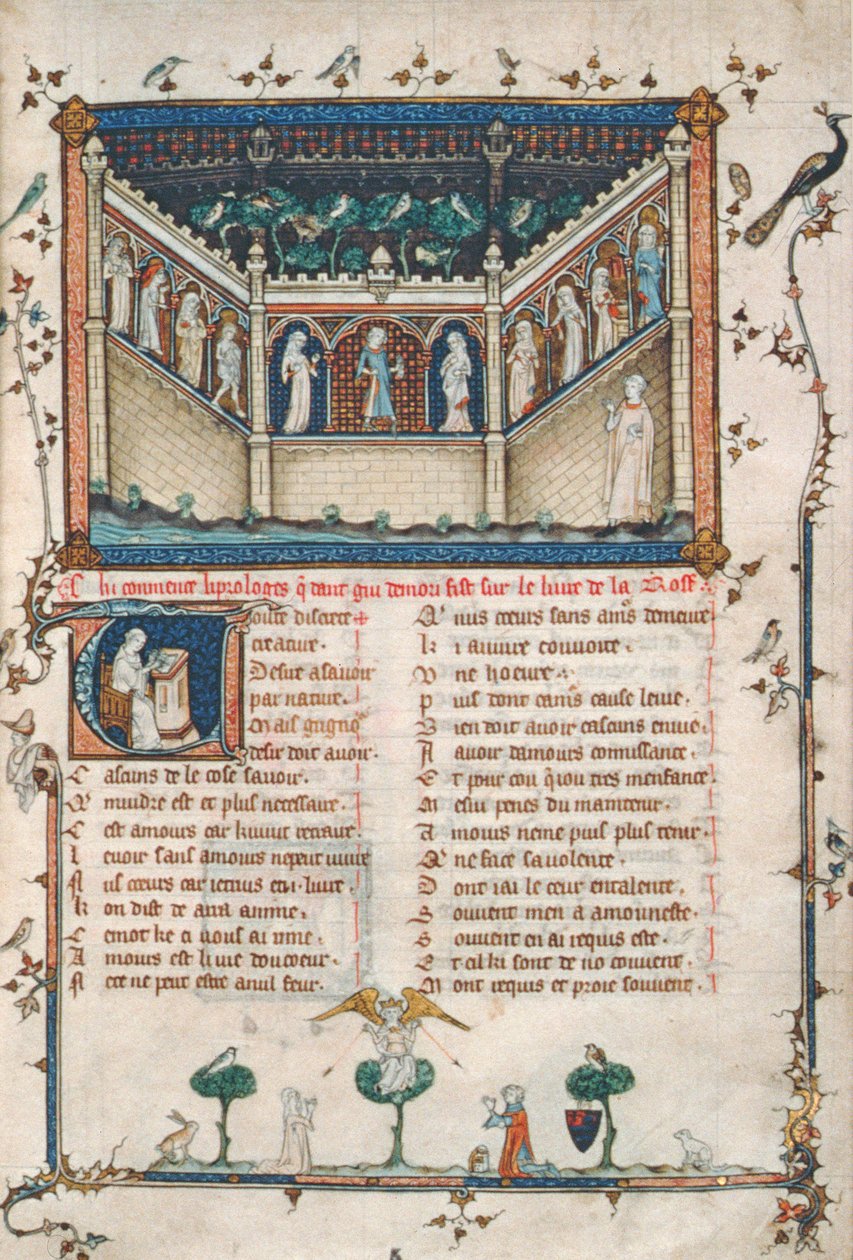 Chi conmence li prologes q̃ dant giu demori fist sur le liure de la Rose
Toute discrete
creature.
Desire a sauoir
par nature.
Mais grignoᵣ
desir doit auoir.
Cascuns de le cose sauoir.
Q̃ muidre est et plus necessaire.
C est amours car ki uiut retraire.
l euoir sans amours ne peut uiure
N us coeurs car ie truis en .i. liure.
k on dist de aura anime.
C e mot ke ci uous ai rime.
A mours est li uie dou coeur.
N e ne peut estre a nul feur.
Q̃ nus coeurs sans am̃s demeure
K i a uiure couuoite.
V ne hoeure.
P uis dont cam̃s cause le uie.
B ien doit auoir cascuns enuie.
A auoir damours connissance.
E t pour cou q̃ iou tres menfance
M e sui penes du maintenir.
A mours ne me puis plus tenir.
Q̃ ne face sa uolente.
D ont iai le ceur entalente.
S ouuent men a amouneste.
S ouuent en ai requis este.
E t cil ki sont de no couuent.
M ont requis et proie souuent.